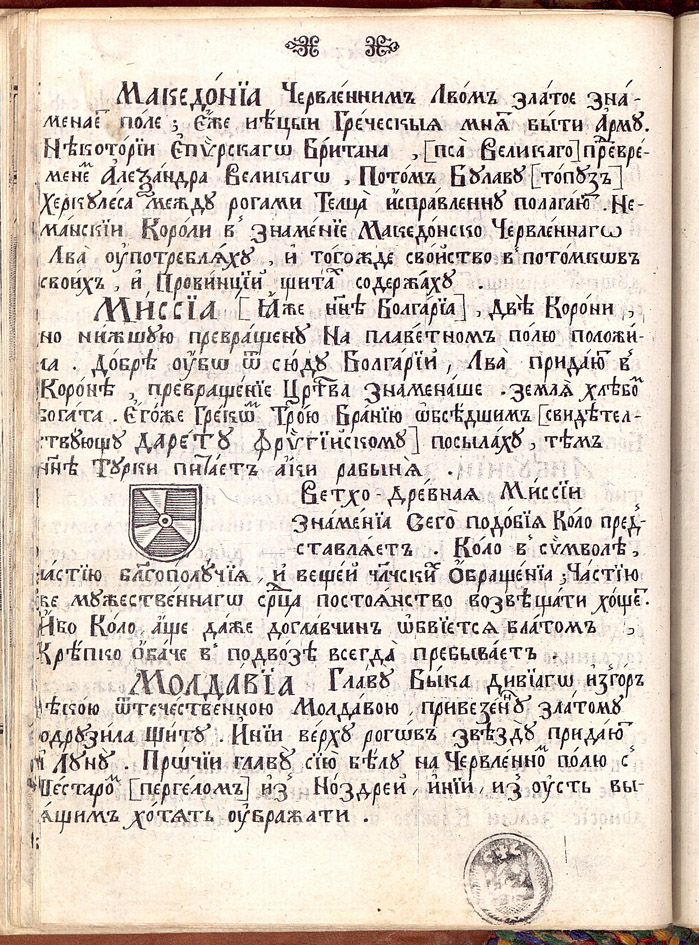 Македо́нїа Червле́ннимъ Лво́мъ зла́тое зна́-
менае͠т поле ; Є҆́же нѣ́цыи Гре́ческыѧ мнѧ͠т бы́ти А҆́рму.
Нѣ́котори Е҆пѵ́рскагѡ Бри́тана , [пса̀ Вели́каго] пре́вре́-
мене͠ А҆леѯа́ндра Вели́кагѡ , Пото́мъ Булаву [то́пузъ]
Херкуле́са между рогами Телца̀ и҆спра́вленну полага́ю͠т Не-
ма́нскїи Короли в̾ зна́менїе Македо́нско Червле́ннагѡ
Лва̀ оу҆потреблѧ́ху , и҆ того́жде сво́йство в̾ пото́мкѡвъ
свои́хъ , и҆ Прови́нцїй щита͠ содержа́ху .
Ми́ссїа [Ꙗ҆́же нн҃ѣ Болга́рїа] , Двѣ̀ Коро́ни ,
но ни́жшую превра́щену На плаве́тномъ по́лю положи́-
ла . До́брѣ оу҆́бѡ ѿ сю́ду Болга́рїй , Лва̀ придаю͠т в̾
Коро́нѣ , превраще́нїе Црⷭ҇тва знамена́ше . земла̀ хлѣбо͠м
бога́та . Є҆го́же Гре́кѡ͠м Тро́ю Бра́нїю ѡ҆бсѣ́дшимъ [свидѣтел-
ствующу Даре́ту Фрѵгі́йскому] посыла́ху , тѣмъ
нн҃ѣ Ту́рки пита́етъ а҆́ки рабы́нѧ .
Ветхо - дре́вная Ми́ссїи
зна́менїа Сего̀ подо́бїѧ Ко́ло пред-
ставлѧ́етъ Ко́ло в̾ сѵ́мволѣ ,
ча́стїю бл҃гополу́чїѧ , и҆ веще́й чл҃чски͠х Ѻ҆браще́нїа ; Ча́стїю
же му́жественнагѡ ср҃ца постоя́нство возвѣща́ти хо́ще͠т .
И҆́бо Ко́ло а҆́ще да́же до гла́вчинъ ѡ҆бвїе́тсѧ бла́томъ ,
Крѣ́пко ѻ҆ба́че в̾ подво́зѣ всегда̀ пребыва́етъ .
Молда́вїа Главу̀ Бы́ка ди́вїагѡ и҆зго́ръ
нѣ́кою ѿте́чественною Молда́вою , привезе́нну зла́тому
водрузи́ла щиту̀ . И҆́нїи ве́рху рогѡ́въ звѣ́зду придаю͠т
и҆ Луну̀ . Прѡ́чїи главу̀ сїю̀ бѣ́лу на Червле́нно͠м по́лю с̾
Шестаро͠м [перге́ломъ] и҆з̾ Но́здрей , и҆́нїи , и҆з̾ оу҆́стъ вы-
ѧ҆́щимъ хотѧ́тъ оу҆бража́ти .